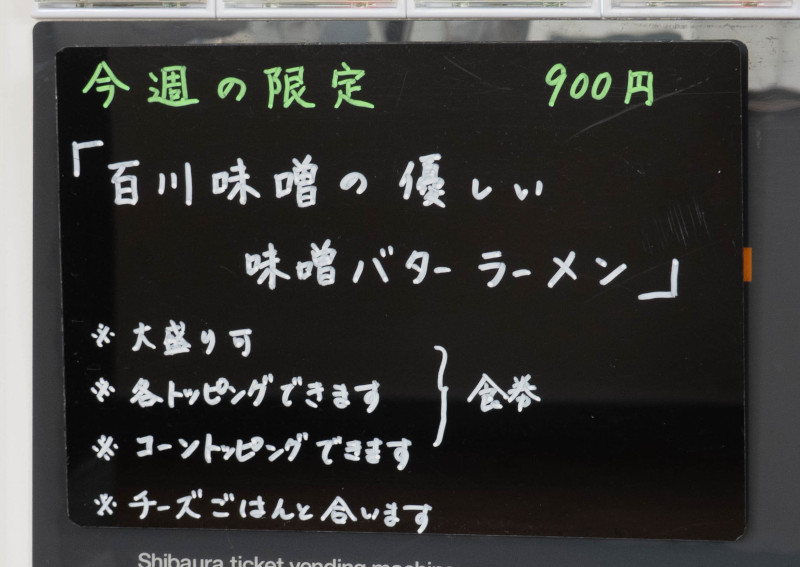 今週の限定 900円
「百川味噌の優しい
味噌バターラーメン」
※大盛り可
※各トッピングできます
※コーントッピングできます
} 食券
※チーズごはんと合います
Shibaura ticket vending machine